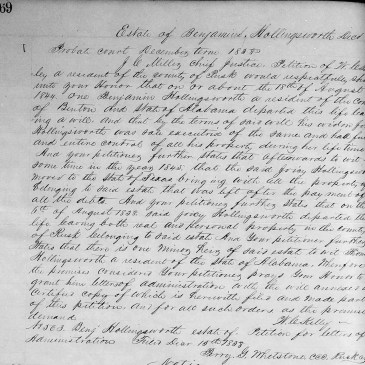 69
Estate of Benjamin Hollingsworth Decd
Probat court December term 1858
J. C. Miller Chief Justice Petition of W.
ly a resident of the county of Rusk would respectfully sh
unto your Honor that on or about the 18th of August
1844. One Benjamin Hollingsworth a resident of the Co
of Benton and State of Alabama departed this life lea
ing a will and that by the terms of said will his
Hollingsworth was sole executrix of the same and had full
and entire control of all his property during her life time
And your petitioner further stats that afterwards to wit
some time in the year 1848. that the said Hollingsworth
moved to the State of Texas bring ing with all the property
belonging to said estate that was left after the payment of
all the debts And your petitioner further stats that on the
6th of August 1858. said Hollingsworth departed this
life leaving both real and personal property in the county
of Rusk belonging to said estate And your petitioner further
stats that there is one minor heir of said estate to wit
Hollingsworth a resident of the State of Alabama Wherefore
the premises considered your petitioner prays your Honor to
grant him letters of administration with the will annexed a
certified copy of which is herewith filed and made part
of this petition and for all such orders as the premises
demand
W. Kelly
No 303 Benj Hollingsworth estate Petition for letters of
administration Filed Decr 15th 1858
G. Whetstone CCC Rusk